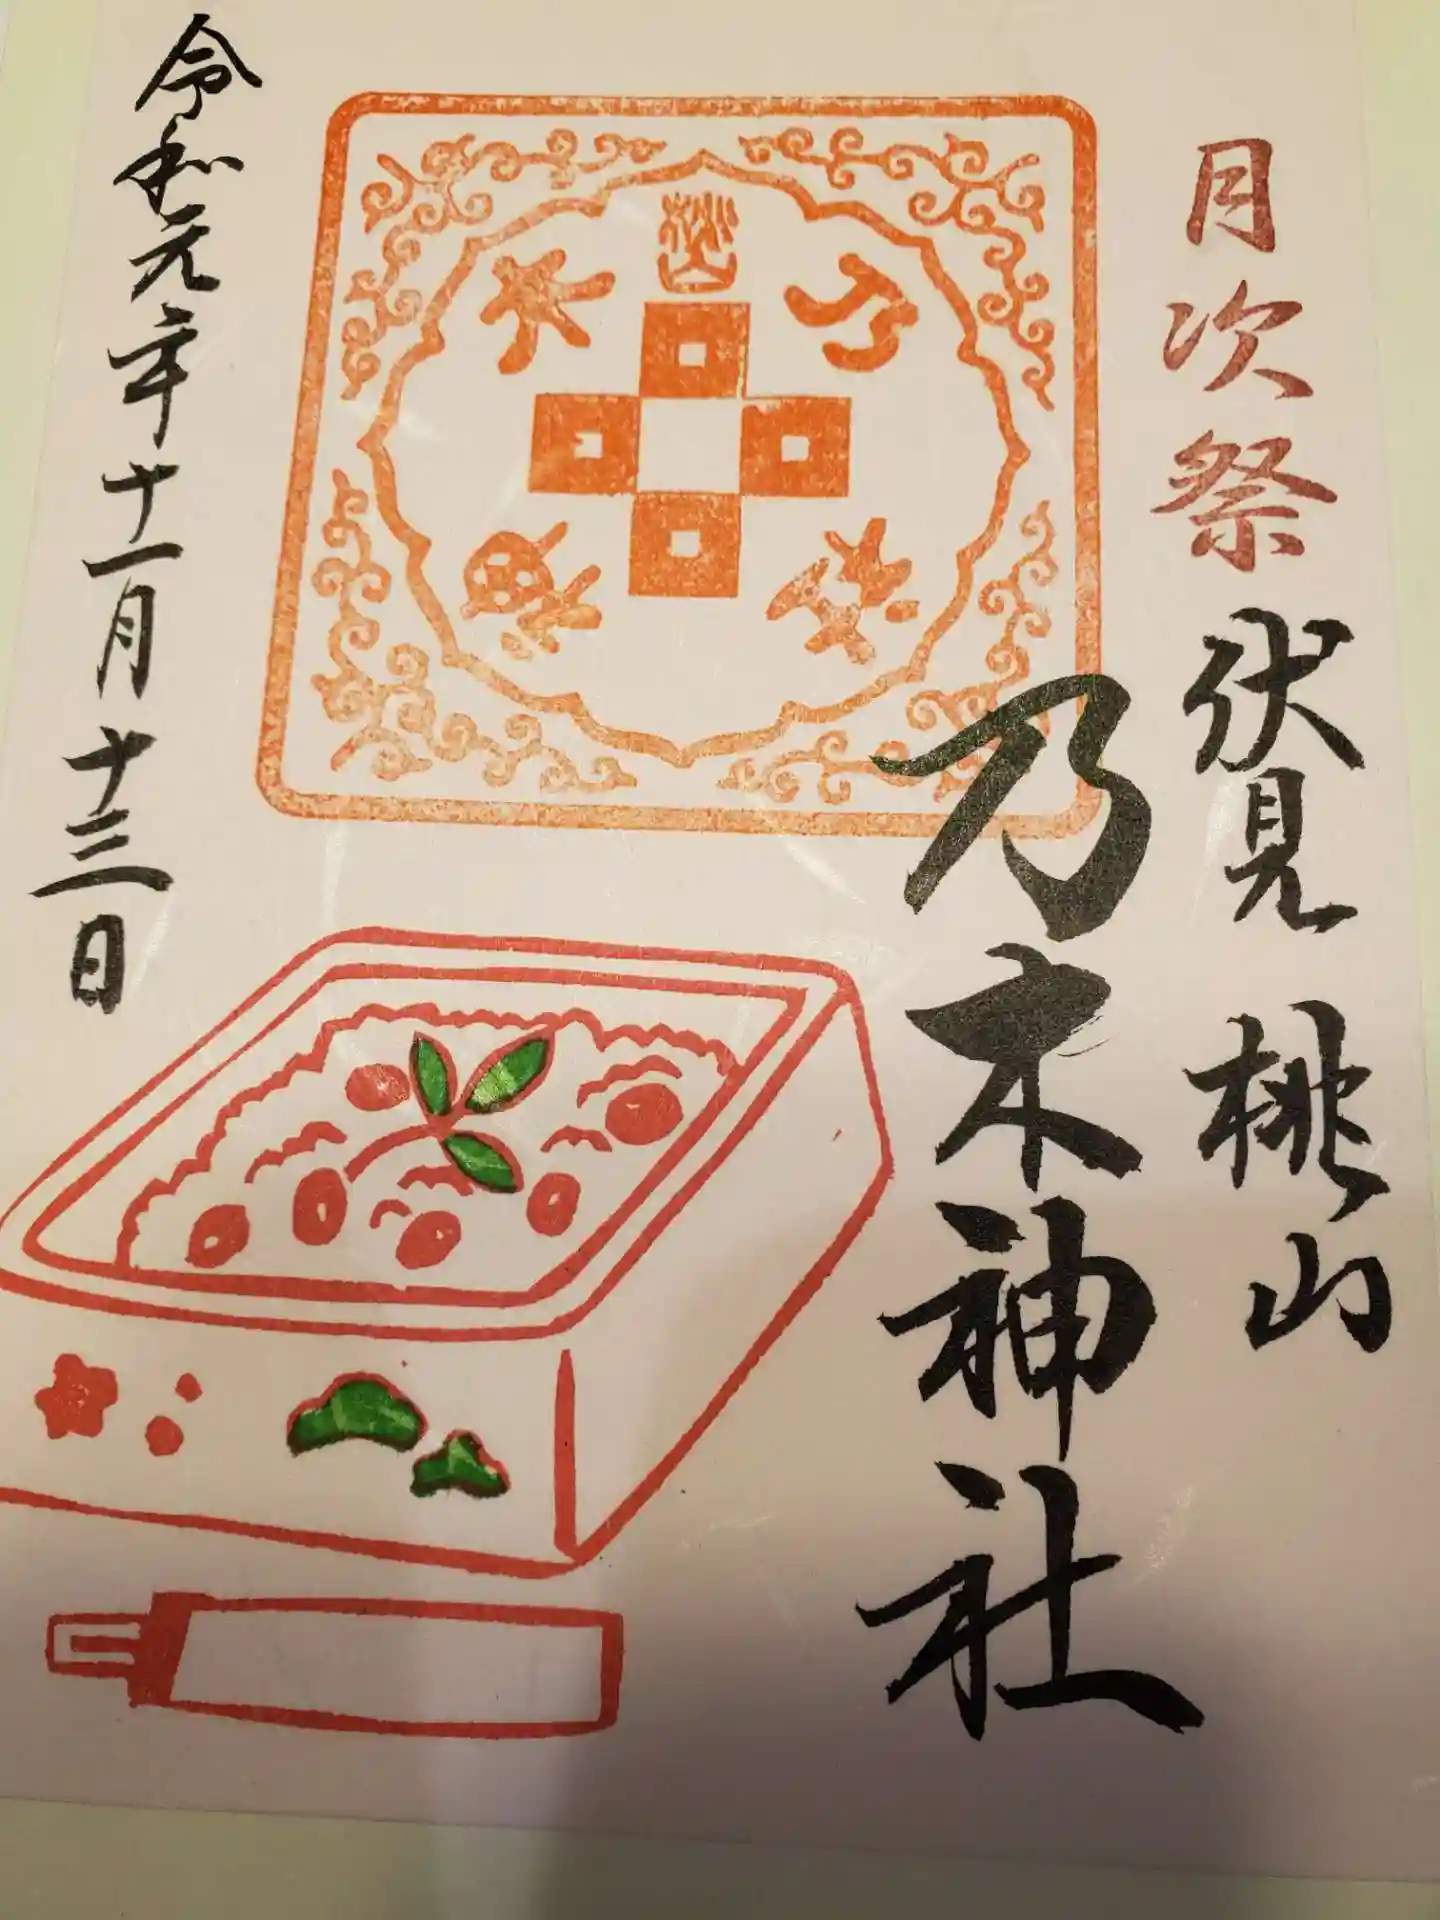 月次祭
伏見 桃山
乃木神社
桃山
乃木
神璽
令和元年十一月十三日